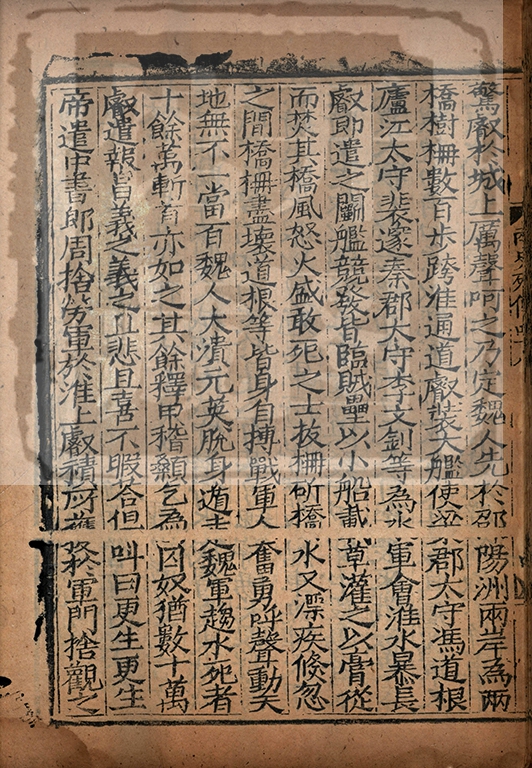 驚叡於城上厲聲呵之乃定魏人先於邵陽洲兩岸為兩
橋樹柵數百步跨淮通道叡裝大艦使梁郡太守馮道根
廬江太守裴邃秦郡太守李文釗等為水軍會淮水暴長
叡即遣之鬭艦競發皆臨賊壘以小船載草灌之以膏從
而焚其橋風怒火盛敢死之士拔柵斫橋水又漂疾倏忽
之間橋柵盡壞道根等皆身自搏戰軍人奮勇呼聲動天
地無不一當百魏人大潰元英脫身遁走魏軍趨水死者
十餘萬斬首亦如之其餘釋甲稽顙乞為囚奴猶數十萬
叡遣報昌義之義之且悲且喜不暇答但叫曰更生更生
帝遣中書郎周捨勞軍於淮上叡積所獲於軍門捨觀之